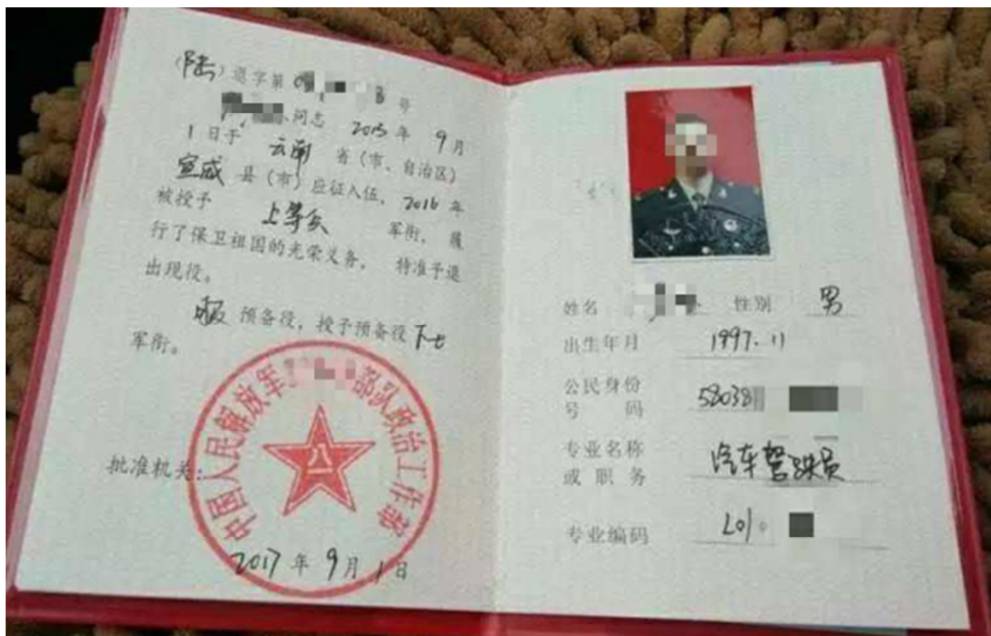 (陆)退字第 0 8 号
同志 2015 年 9 月
1 日于 云南 省(市、自治区)
宣威 县(市)应征入伍,2016 年
被授予 上等兵 军衔,履
行了保卫祖国的光荣义务,特准予退
出现役。
服 预备役,授予预备役 下士
军衔。
中国人民解放军 部队政治工作部
八一
批准机关:
2017 年 9 月 1 日
姓名 性别 男
出生年月 1997.11
公民身份
号 码 58038
专业名称
或 职 务 汽车驾驶员
专业编码 L01